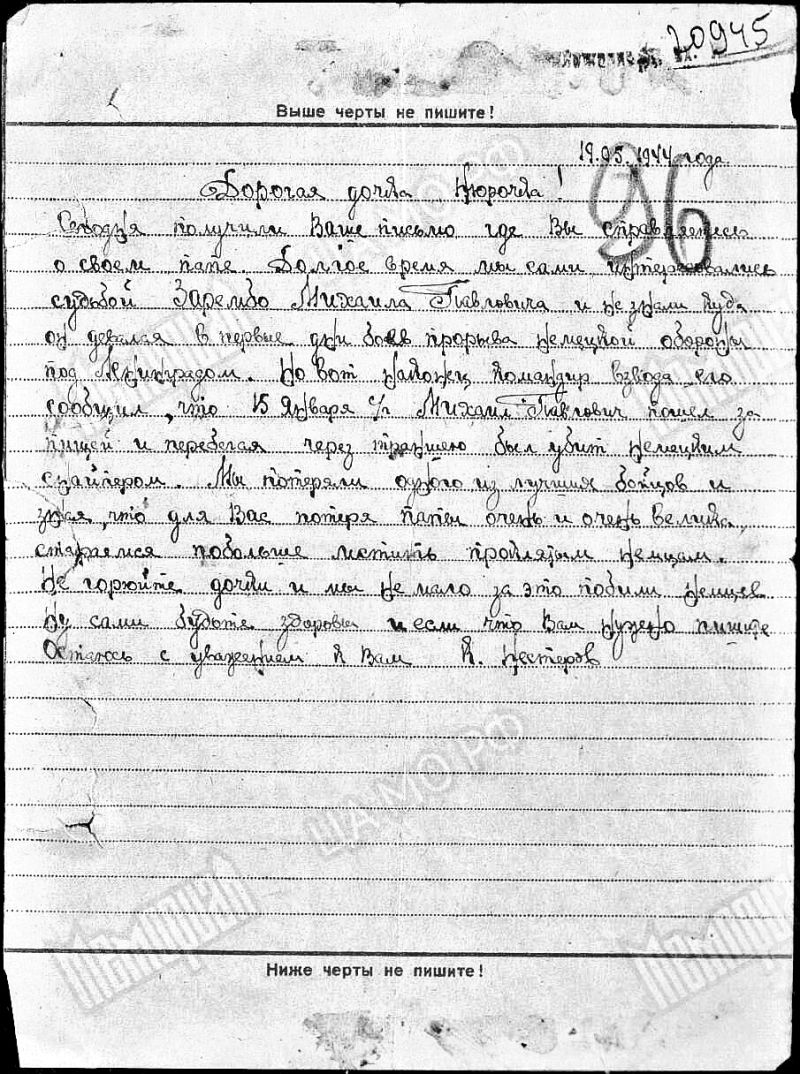 20945
Выше черты не пишите!
19.05.1944 года
96
Дорогая дочка Нюрочка!
Сегодня получили Ваше письмо где Вы справляетесь
о своем папе. Долгое время мы сами интересовались
судьбой Зарембо Михаила Павловича и не знали куда
он девался в первые дни боев прорыва немецкой обороны
под Ленинградом. Но вот наконец командир взвода его
сообщил, что 15 Января с/г Михаил Павлович пошел за
пищей и перебегая через траншею был убит немецким
снайпером. Мы потеряли одного из лучших бойцов и
зная, что для Вас потеря папы очень и очень велика,
стараемся побольше мстить проклятым немцам.
Не горюйте дочки и мы не мало за это побили немцев
Ну сами будьте здоровы и если что Вам нужно пишите
Остаюсь с уважением к Вам К. Нестеров
ЦАМО РФ
Мемориал
Ниже черты не пишите!